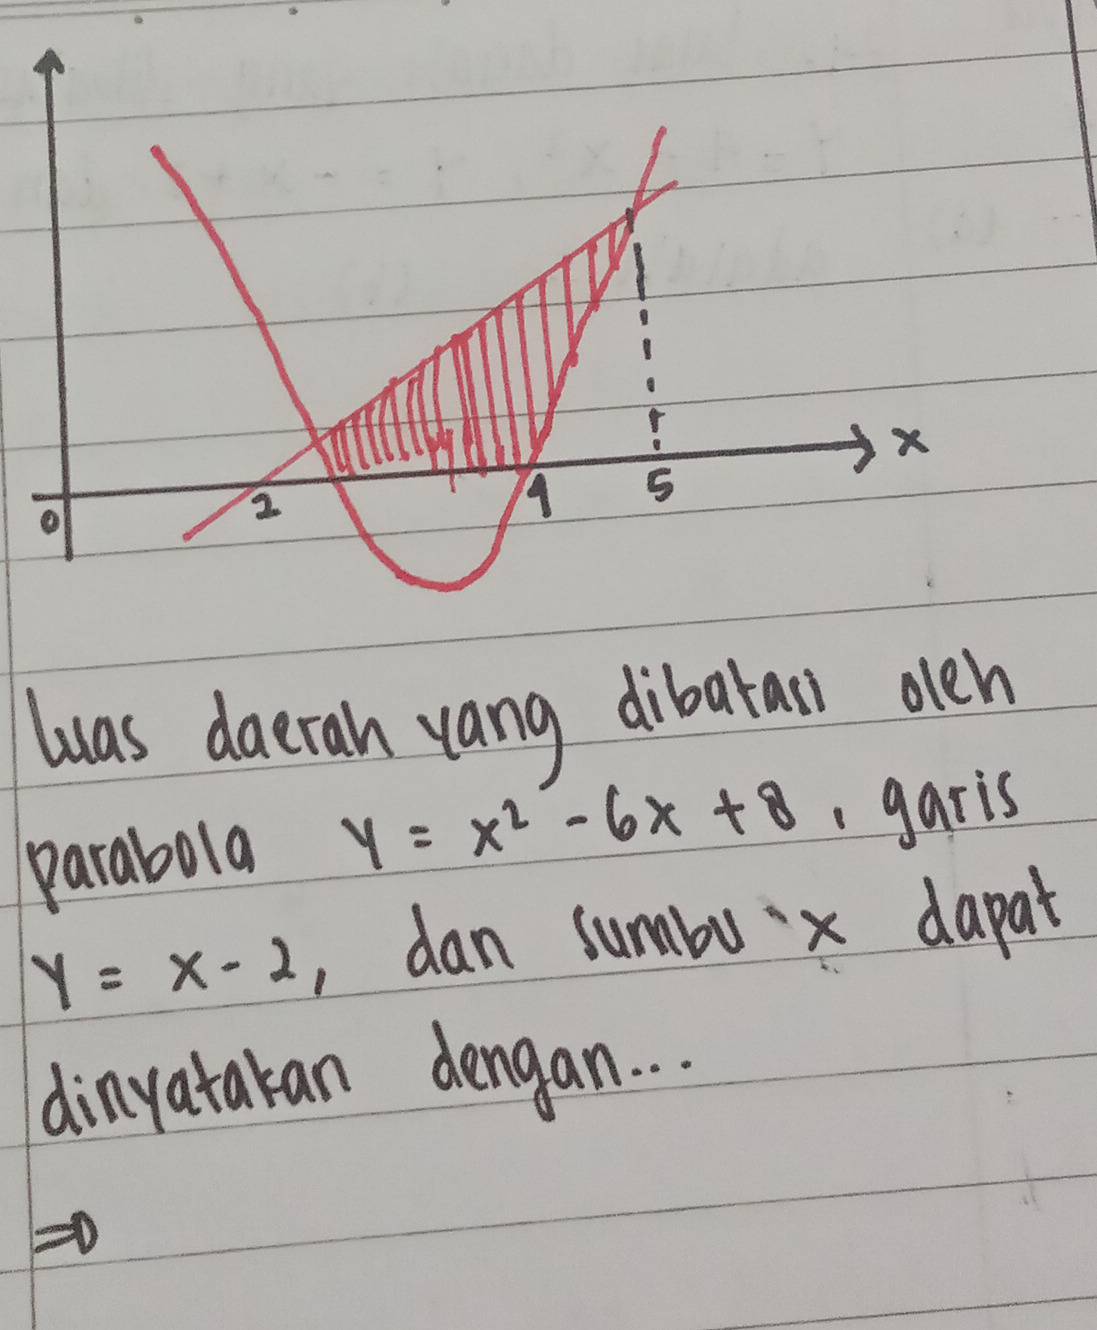 x
0
2
4
5
luas daerah yang dibatasi oleh
parabola y = x² - 6x + 8, garis
y = x - 2, dan sumbu x dapat
dinyatakan dengan...
⇒